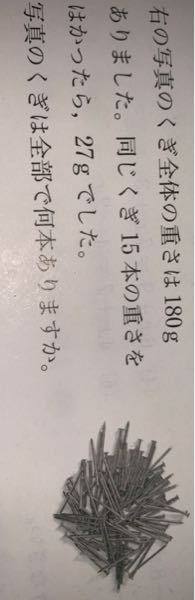 右の写真のくぎ全体の重さは180g
ありました。同じくぎ15本の重さを
はかったら，27gでした。
写真のくぎは全部で何本ありますか。